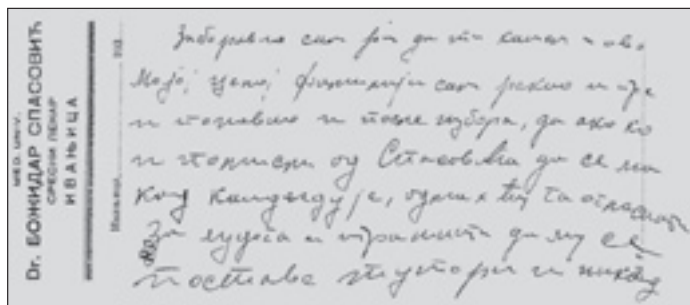 MED. UNIV.
Dr. БОЖИДАР СПАСОВИЋ
СРЕСКИ ЛЕКАР
ИВАЊИЦА
193
Заборавио сам још да ти кажем и ово.
Мојој целој фамилији сам рекао и пре
и поновио и после избора, да ако ко
и помисли од Спасовића да се ма
код кандидује, одмах ћу га огласити
За лудога и тражити да му се
поставе тутори и никад